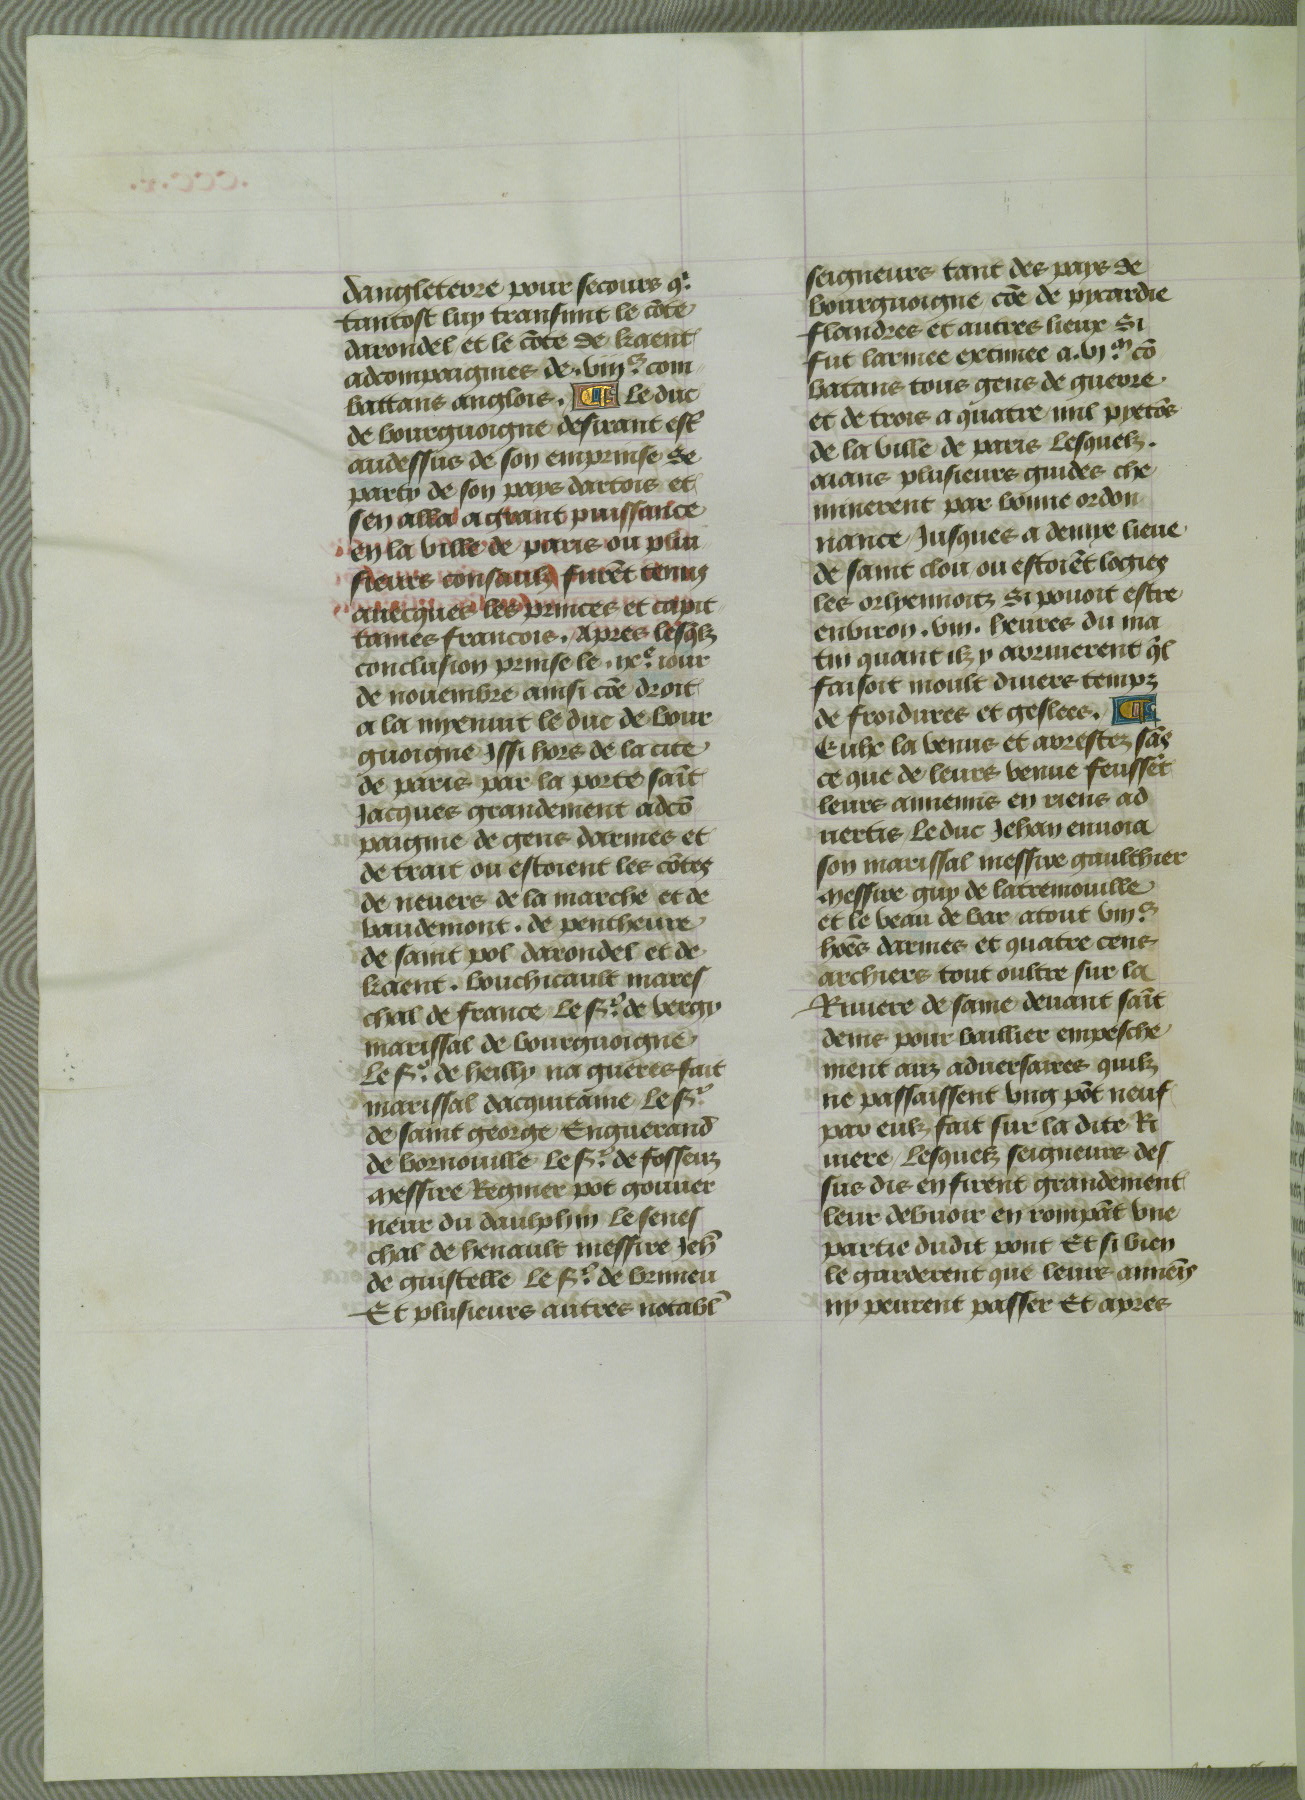 dangleterre pour secours qͥ
tantost luy transmit le cōte
darondel et le cōte de kaent
adcompaignies de .viijͨ. com
battans anglois. ¶ Le duc
de bourguoigne desirant estr̄
audessus de son emprinse se
party de son pays dartois et
sen alla a grant puissance
en la ville de paris ou plui
sieurs consaulz furēt tenuz
auecques les princes et capit
taines francois. Apres lesq̄lz
conclusion prinse le .ixͤ. iour
de nouembre ainsi cōe droit
a la myenuit le duc de bour
guoigne Issi hors de la cite
de paris par la porte sait̄
Jacques grandement adcō
paignie de gens darmes et
de trait ou estoient les cōtes
de neuers de la marche et de
vaudemont. de pentheure
de saint pol darondel et de
kaent. bouchicault mares
chal de france Le sͬ. de vergy
marissal de bourguoigne
Le sͬ. de heilly na gueres fait
marissal dacquitaine Le sͬ.
de saint george Enguerand̄
de bornouille Le sͬ. de fosseux
messire Regnier pot gouuer
neur du daulphin Le senes
chal de henault messire Jeh̄
de guistelle Le sͬ. de brimeu
Et plusieurs autres notabl̄
seigneurs tant des pays de
bourguoigne cōe de pycardie
flandres et autres lieux Si
fut larmee extimee a .vjͫ. cō
batans tous gens de guerre
et de trois a quatre mil pyetōs
de la ville de paris Lesquelz.
aians plusieurs guides che
minerent par bonne ordon
nance Jusques a demye lieue
de saint clou ou estoiēt logies
les orlyennoitz Si pouoit estre
enbiron .viij. heures du ma
tin quant ilz y arriuerent q̄l
faisoit moult diuers temps
de froidures et geslees. ¶
Eulx la venus et arrestez sās
ce que de leurs venue feussēt
leurs annemis en riens ad
uertis Le duc Jehan enuoia
son marissal messire gaulthier
messire guy de latremouille
et le veau de bar atout viijͨ
hōēs darmes et quatre cens
archiers tout oultre sur la
Riuiere de saine deuant sāit
denis pour baillier empesche
ment aux aduersaires quilz
ne passaissent vng pōt neuf
par eulx fait sur la dite Ri
uiere Lesquelz seigneurs des
sus dis en firent grandement
leur debuoir en rompāt vne
partie dudit pont Et si bien
le garderent que leurs annēis
ny peurent passer Et apres